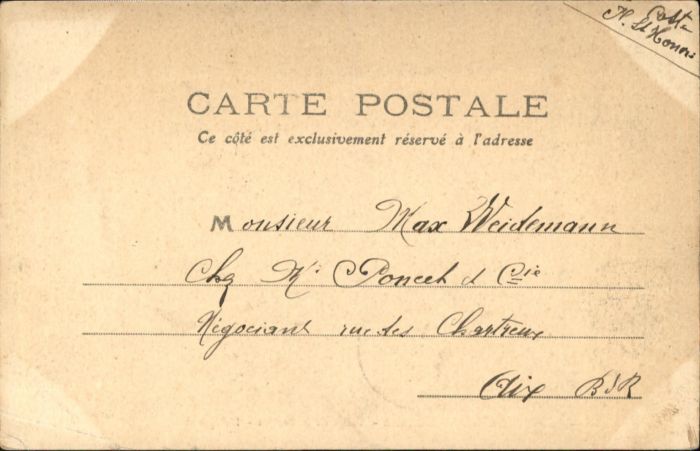 Poste
St Honoré
CARTE POSTALE
Ce côté est exclusivement réservé à l'adresse
Monsieur Max Weidemann
Chez Mr Poncet & Cie
Négociant rue des Chartreux
Aix BdR